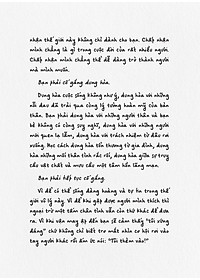 nhận thế giới này không chỉ dành cho bạn. Chấp nhận
mình chẳng là gì trong cuộc đời của rất nhiều người.
Chấp nhận mình chẳng thể dễ dàng trở thành người
mà mình muốn.
Bạn phải cố gắng dung hòa.
Dung hòa cuộc sống không như ý, dung hòa với những
nỗi đau đã trải qua cùng lý tưởng hoàn mỹ của bản
thân. Bạn phải dung hòa với những người thân và bạn
bè không có cùng suy nghĩ, dung hòa với những người
mới quen lạ lẫm, dung hòa với trách nhiệm từ đâu rơi
xuống. Học cách dung hòa tổn thương từ gia đình, dung
hòa những mối thân tình rắc rối, dung hòa giữa sự truy
cầu vật chất và mơ ước một tâm hồn lãng mạn.
Bạn phải tiếp tục cố gắng.
Vì để có thể sống đàng hoàng và tự tin trong thế
giới vô lý này. Vì để khi gặp được người mình thích thì
ngoài trừ một tấm chân tình vẫn còn thứ khác để đưa
ra. Vì khi vận may ập đến bạn sẽ cảm thấy "tôi xứng
đáng" chứ không chỉ biết tro mắt nhìn cơ hội rơi vào
tay người khác rồi ấm ức nói: "Tôi thèm vào!"